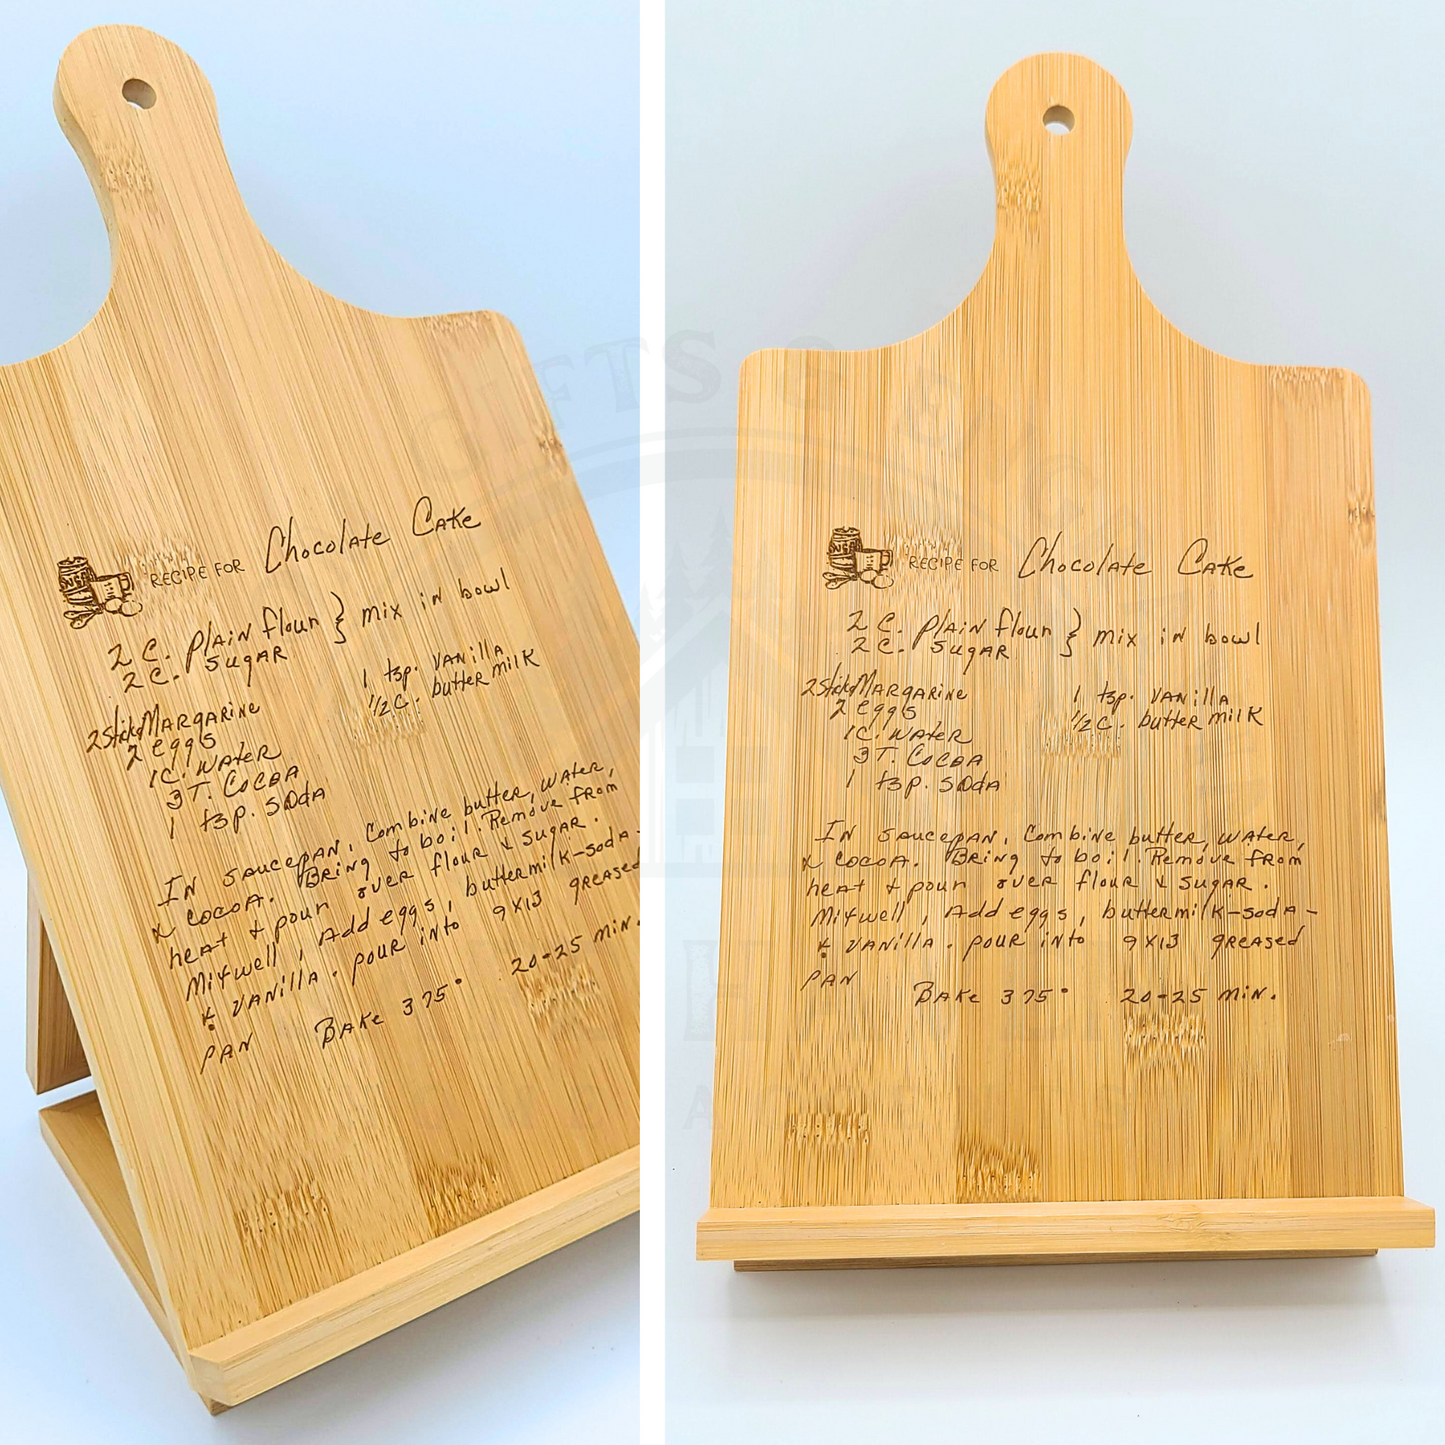 RECIPE FOR Chocolate Cake
2 C. plain flour } mix in bowl
2 C. sugar
2 sticks Margarine
2 eggs
1 C. water
3 T. Cocoa
1 tsp. soda
1 tsp. vanilla
1/2 C. buttermilk
In saucepan, Combine butter, water,
& cocoa. Bring to boil. Remove from
heat & pour over flour & sugar.
Mix well, Add eggs, buttermilk-soda-
& vanilla. pour into 9x13 greased
pan
Bake 375° 20-25 min.
RECIPE FOR Chocolate Cake
2 C. plain flour } mix in bowl
2 C. sugar
2 sticks Margarine
2 eggs
1 C. water
3 T. Cocoa
1 tsp. soda
1 tsp. vanilla
1/2 C. buttermilk
In saucepan, Combine butter, water,
& cocoa. Bring to boil. Remove from
heat & pour over flour & sugar.
Mix well, Add eggs, buttermilk-soda-
& vanilla. pour into 9x13 greased
pan
Bake 375° 20-25 min.
GIFTS &